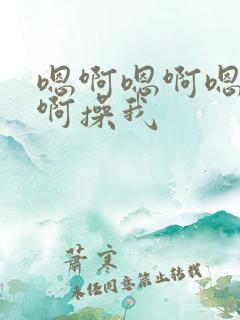 嗯啊嗯啊嗯
啊操我
萧寒
未经同意禁止转载